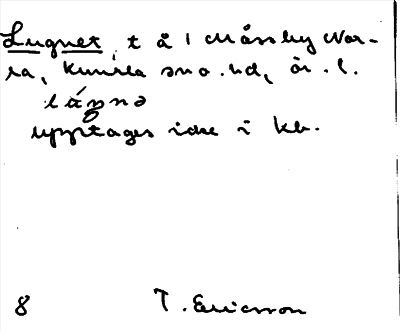 Lugnet, t å 1 Mässby Nor-
ra, Kumla sn o. hd, ör. l.
låŋnə
upptages icke i kb.
8 T. Ericsson